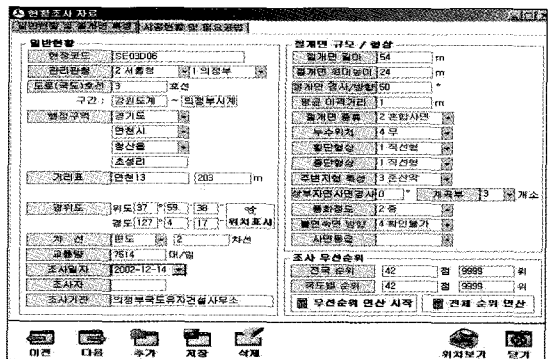 현황조사 자료
일반현황 및 절개면 특성 시공현황 및 필요공법
일반현황
현장코드 SE03D06
관리관청 2 서울청 1 의정부
도로(국도)호선 3 호선
구간 : 강원도계 ~ 의정부시계
행정구역 경기도
연천시
청산읍
초성리
거리표 연천13 203 m
경위도 위도 37 ° 59 ' 38 "
경도 127 ° 4 ' 17 " 위치표시
차 선 편도 2 차선
교통량 7614 대/일
조사일자 2002-12-14
조사자
조사기관 의정부국도유지건설사무소
절개면 규모 / 형상
절개면 길이 54 m
절개면 최대높이 24 m
절개면 경사/방향 50 °
평균 이격거리 1 m
절개면 종류 2 혼합사면
누수위치 4 무
횡단형상 1 직선형
종단형상 1 직선형
주변지형 특성 3 준산악
상부자연사면경사 0 ° 계곡부 3 개소
풍화정도 2 중
불연속면 방향 4 확인불가
사면등급
조사 우선순위
전국 순위 42 점 9999 위
국도별 순위 42 점 9999 위
우선순위 연산 시작 전체 순위 연산
이전 다음 추가 저장 삭제 위치보기 닫기